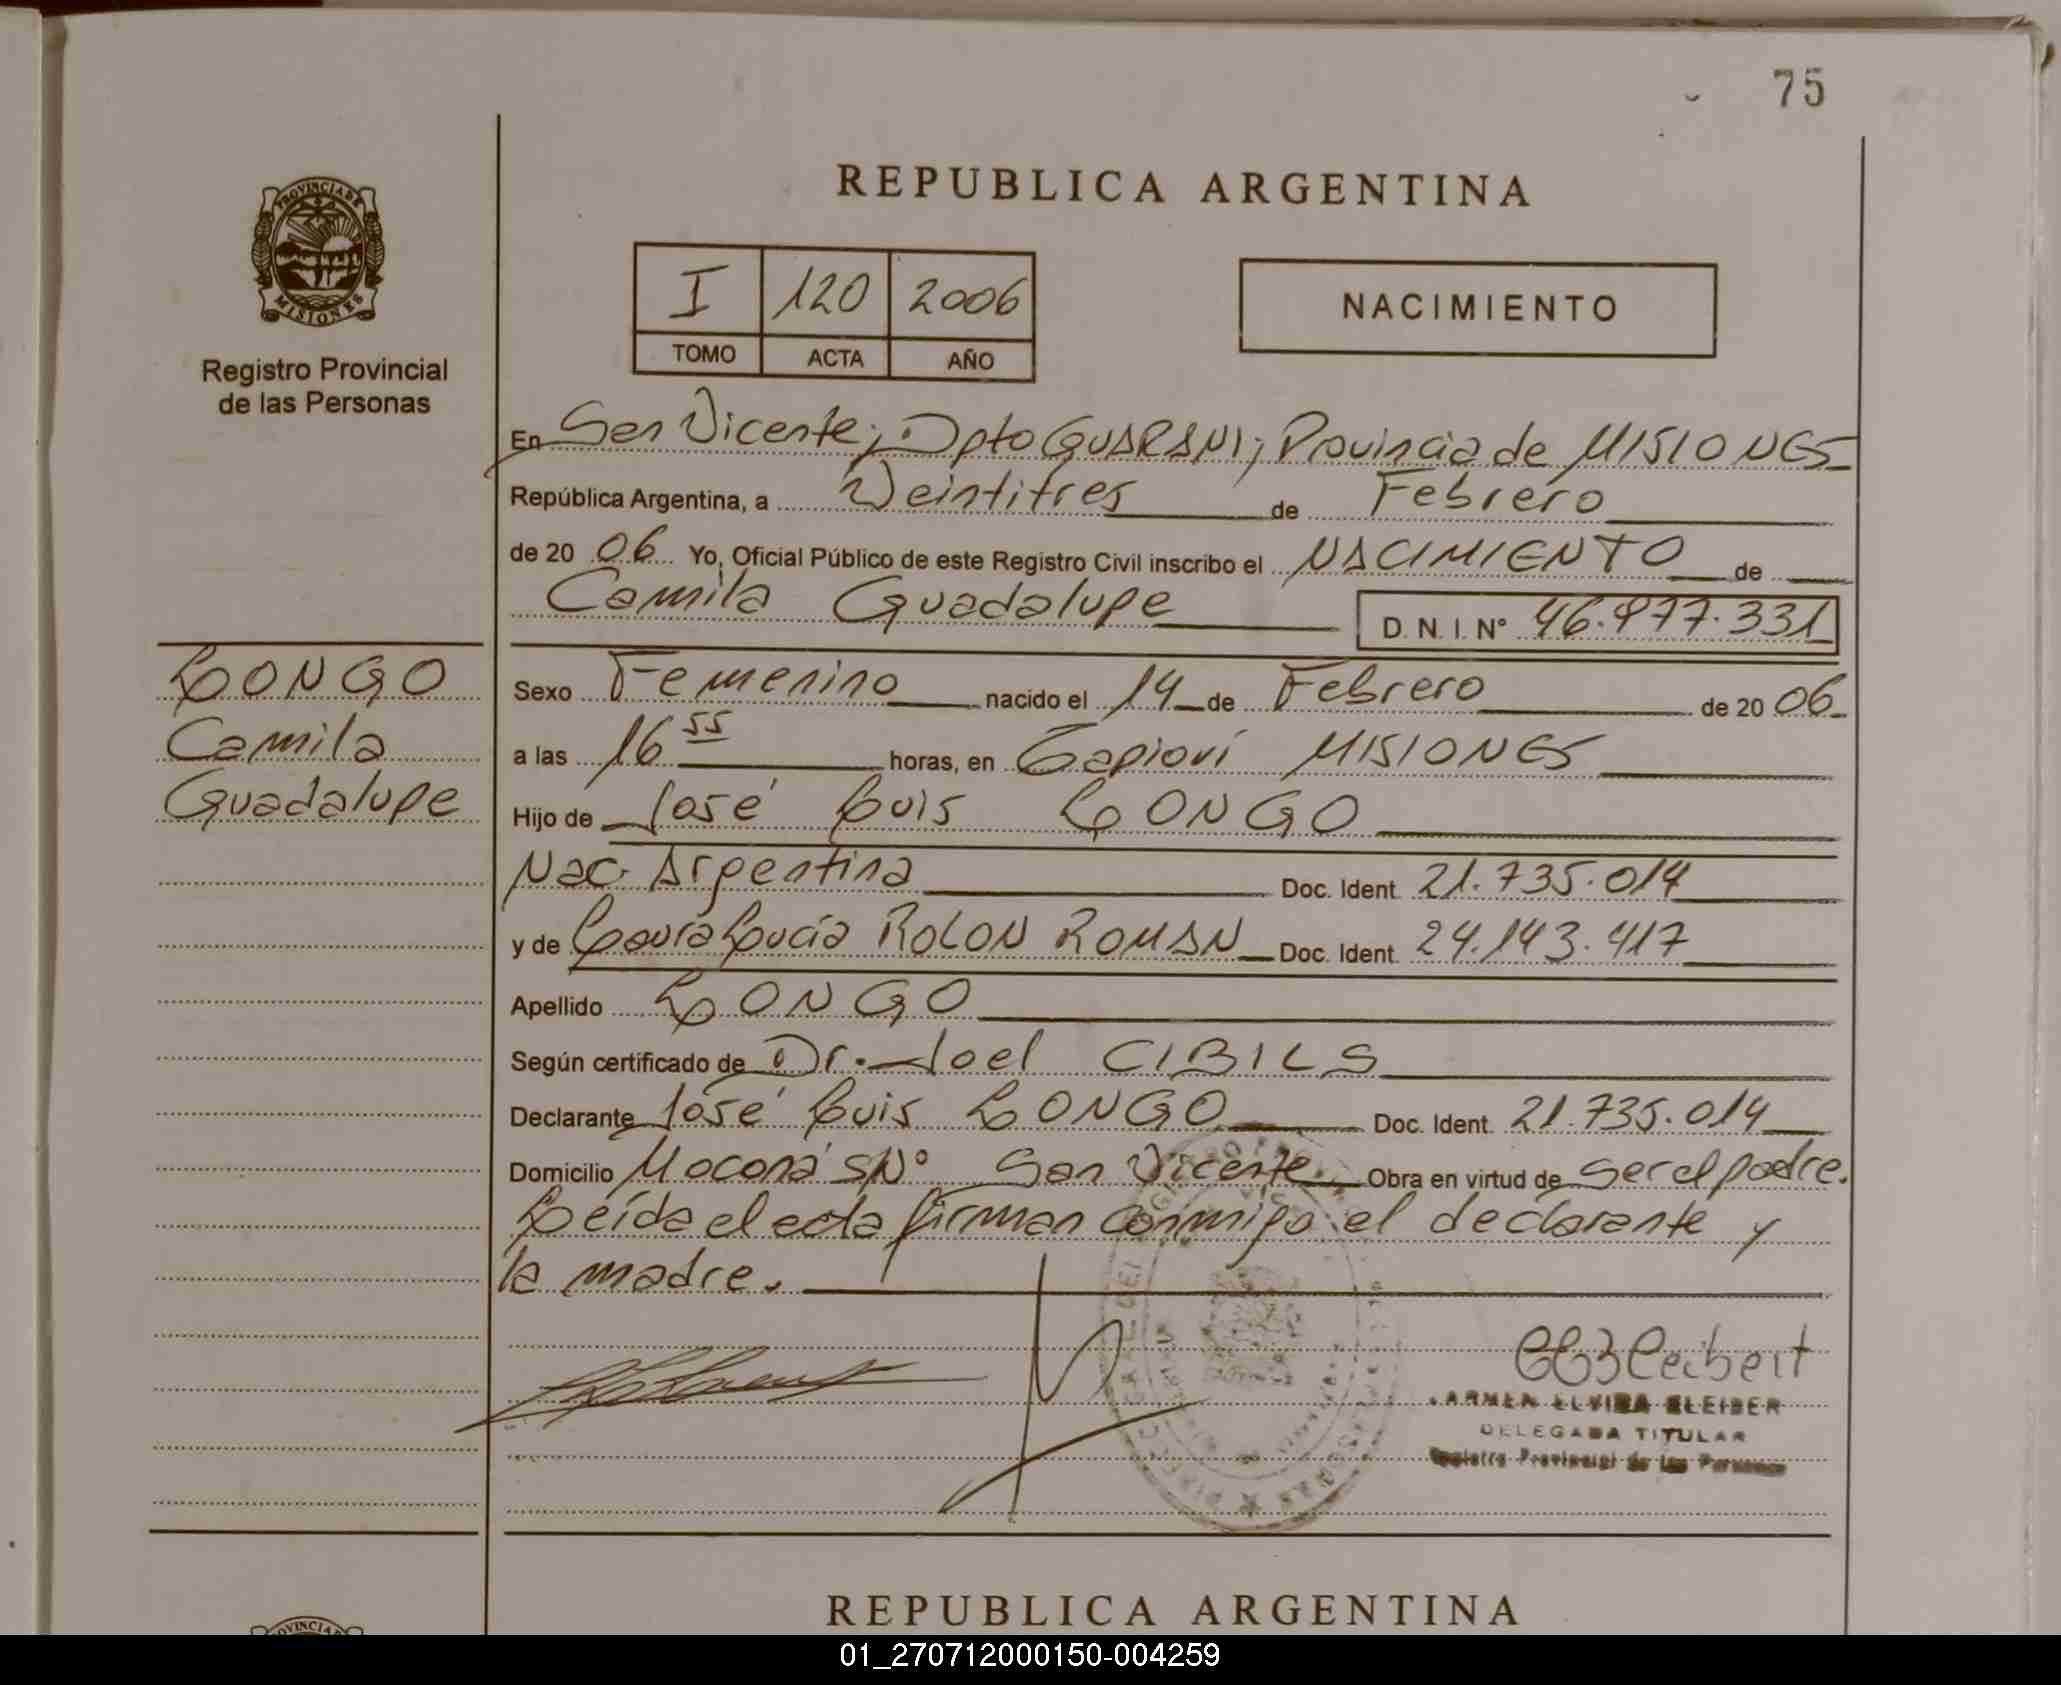 75
PROVINCIA DE
MISIONES
Registro Provincial
de las Personas
REPUBLICA ARGENTINA
I 120 2006
TOMO ACTA AÑO
NACIMIENTO
En San Vicente; Dpto GUARANI; Provincia de MISIONES
República Argentina, a Veintitres de Febrero
de 20 06 Yo, Oficial Público de este Registro Civil inscribo el NACIMIENTO de
Camila Guadalupe D.N.I. Nº 46.977.331
LONGO
Camila
Guadalupe
Sexo Femenino nacido el 14 de Febrero de 20 06
a las 16 55 horas, en Capioví MISIONES
Hijo de José Luis LONGO
Nac. Argentina Doc. Ident. 21.735.014
y de Laura Lucía ROLON ROMAN Doc. Ident. 24.143.417
Apellido LONGO
Según certificado de Dr. Joel CIBILS
Declarante José Luis LONGO Doc. Ident. 21.735.014
Domicilio Moconá S/Nº San Vicente Obra en virtud de ser el padre.
Leída el acta firman conmigo el declarante y
la madre.
DELEGADA TITULAR
Registro Provincial de las Personas
REPUBLICA ARGENTINA
01_270712000150-004259